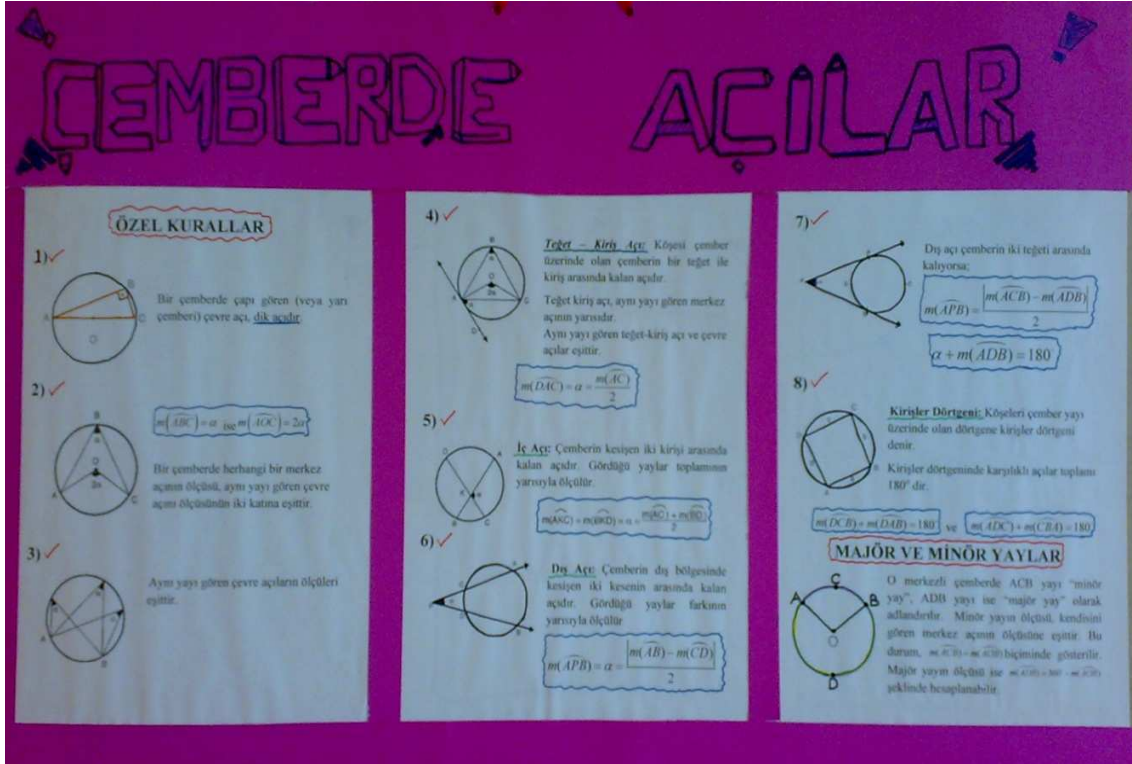 ÇEMBERDE AÇILAR
ÖZEL KURALLAR
1)
Bir çemberde çapı gören (veya yarı
çemberi) çevre açı, dik açıdır.
A
B
C
O
2)
m(ABC) = α ise m(AOC) = 2α
B
α
O
2α
A
C
Bir çemberde herhangi bir merkez
açının ölçüsü, aynı yayı gören çevre
açını ölçüsünün iki katına eşittir.
3)
Aynı yayı gören çevre açıların ölçüleri
eşittir.
A
B
4)
Teğet – Kiriş Açı: Köşesi çember
üzerinde olan çemberin bir teğet ile
kiriş arasında kalan açıdır.
Teğet kiriş açı, aynı yayı gören merkez
açının yarısıdır.
Aynı yayı gören teğet-kiriş açı ve çevre
açılar eşittir.
B
O
2α
D
m(DAC) = α = m(AC) / 2
5)
İç Açı: Çemberin kesişen iki kirişi arasında
kalan açıdır. Gördüğü yaylar toplamının
yarısıyla ölçülür.
D
A
K
B
C
m(AKC) = m(BKD) = α = m(AC) + m(BD) / 2
6)
Dış Açı: Çemberin dış bölgesinde
kesişen iki kesenin arasında kalan
açıdır. Gördüğü yaylar farkının
yarısıyla ölçülür
m(APB) = α = |m(AB) – m(CD)| / 2
7)
Dış açı çemberin iki teğeti arasında
kalıyorsa;
m(APB) = |m(ACB) – m(ADB)| / 2
α + m(ADB) = 180
8)
Kirişler Dörtgeni: Köşeleri çember yayı
üzerinde olan dörtgene kirişler dörtgeni
denir.
Kirişler dörtgeninde karşılıklı açılar toplamı
180° dir.
m(DCB) + m(DAB) = 180 ve m(ADC) + m(CBA) = 180
MAJÖR VE MİNÖR YAYLAR
C
A
B
O
D
O merkezli çemberde ACB yayı "minör
yay", ADB yayı ise "majör yay" olarak
adlandırılır. Minör yayın ölçüsü, kendisini
gören merkez açının ölçüsüne eşittir. Bu
durum, biçiminde gösterilir.
Majör yayın ölçüsü ise
şeklinde hesaplanabilir.